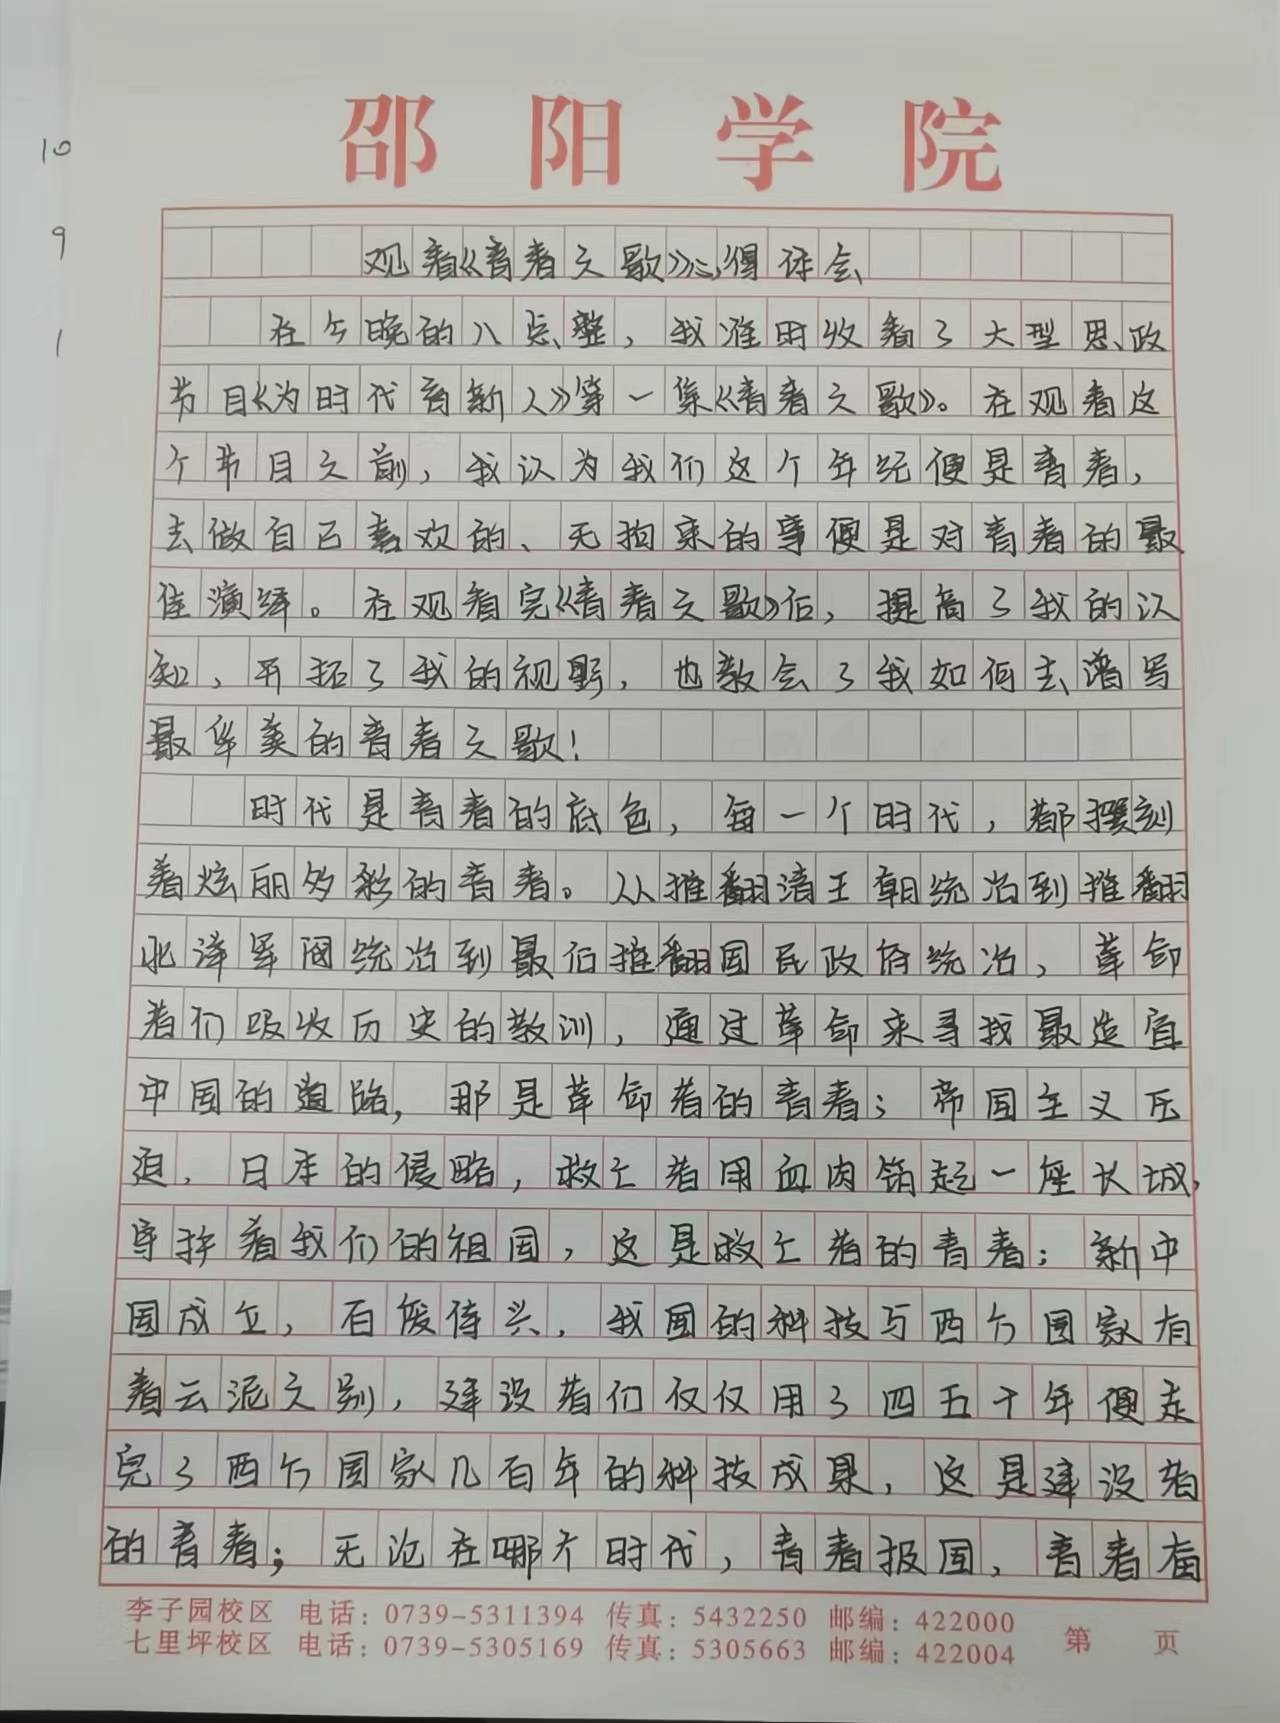 邵阳学院
10
9
1
观看《青春之歌》心得体会
在今晚的八点整，我准时收看了大型思政
节目《为时代育新人》第一集《青春之歌》。在观看这
个节目之前，我认为我们这个年纪便是青春，
去做自己喜欢的、无拘束的事便是对青春的最
佳演绎。在观看完《青春之歌》后，提高了我的认
知，开拓了我的视野，也教会了我如何去谱写
最华美的青春之歌！
时代是青春的底色，每一个时代，都撰刻
着炫丽多彩的青春。从推翻清王朝统治到推翻
北洋军阀统治到最后推翻国民政府统治，革命
者们吸收历史的教训，通过革命来寻找最适宜
中国的道路，那是革命者的青春；帝国主义压
迫，日本的侵略，救亡者用血肉筑起一座长城，
守护着我们的祖国，这是救亡者的青春；新中
国成立，百废待兴，我国的科技与西方国家有
着云泥之别，建设者们仅仅用了四五十年便走
完了西方国家几百年的科技成果，这是建设者
的青春；无论在哪个时代，青春报国，青春有
李子园校区 电话：0739-5311394 传真：5432250 邮编：422000
七里坪校区 电话：0739-5305169 传真：5305663 邮编：422004
第 页